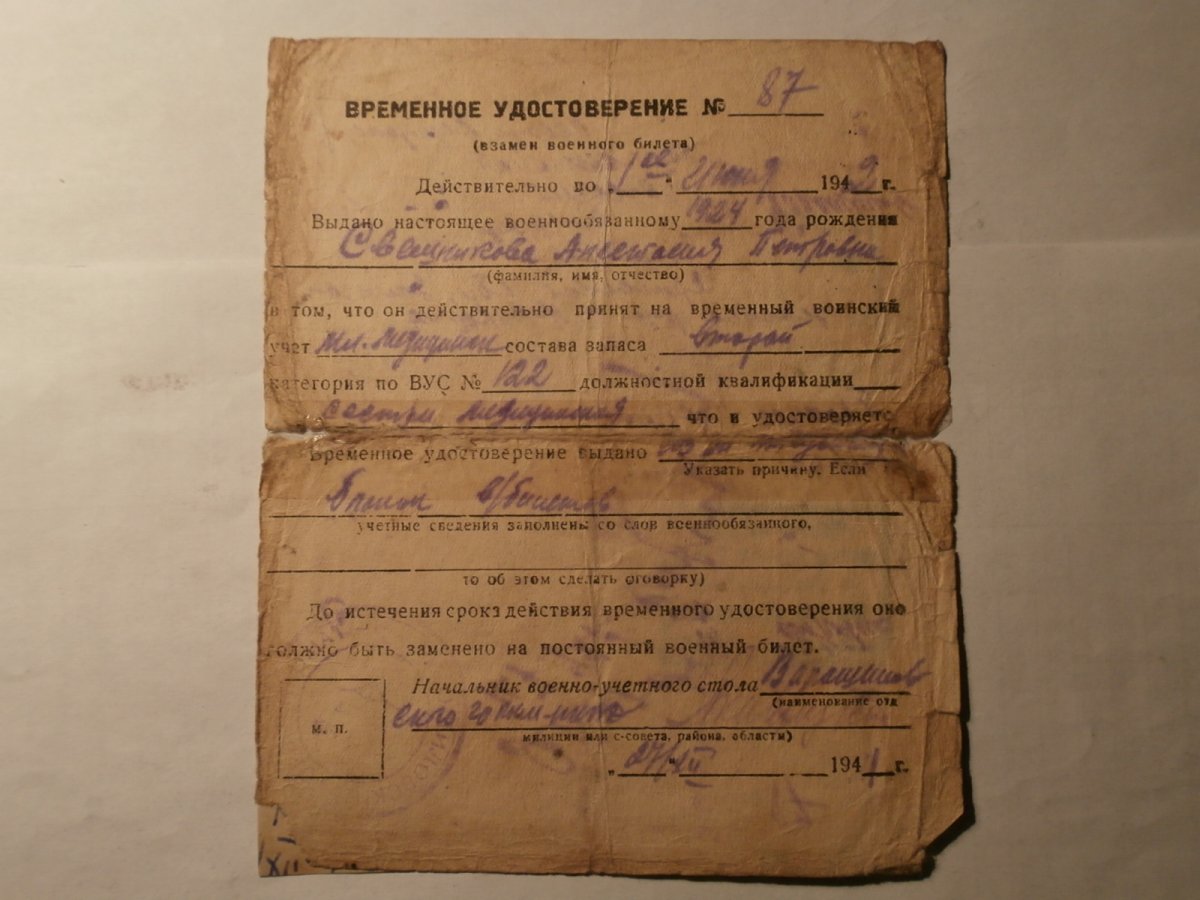 ВРЕМЕННОЕ УДОСТОВЕРЕНИЕ № 87
(взамен военного билета)
Действительно по „1ое“ июня 1942 г.
Выдано настоящее военнообязанному 1924 года рождения
Свешникова Анастасия Петровна
(фамилия, имя, отчество)
в том, что он действительно принят на временный воинский
учёт мл. медицинск состава запаса второй
категория по ВУС № 122 должностной квалификации
сестра медицинская что и удостоверяетс
Временное удостоверение выдано
Указать причину. Если
бланок в/билетов
учетные сведения заполнены со слов военнообязаиного,
то об этом сделать оговорку)
До истечения срока действия временного удостоверения оно
должно быть заменено на постоянный военный билет.
Начальник военно-учетного стола
(наименование отд
м. п.
милиции или с-совета, района, области)
„27/XII“ 1941 г.
XII